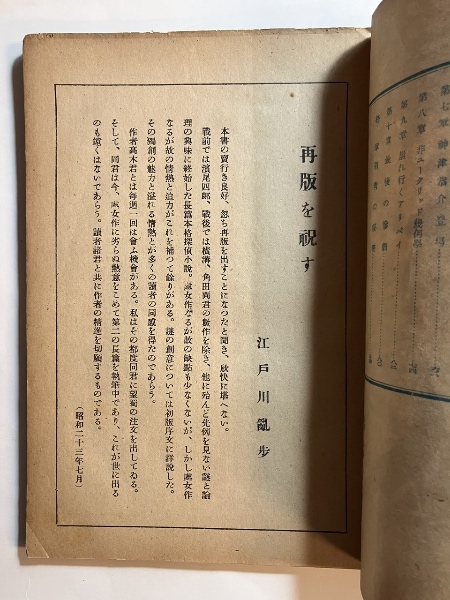 再版を祝す
江戸川亂步
本書の賣行き良好、忽ち再版を出すことになつたと聞き、欣快に堪へない。
戰前では濱尾四郎、戰後では橫溝、角田兩君の數作を除き、他に殆んど先例を見ない謎と論
理の興味に終始した長篇本格探偵小說。處女作なるが故の缺點も少なくないが、しかし處女作
なるが故の情熱と迫力がこれを補つて餘りがある。謎の創意については初版序文に詳說した。
その獨創の魅力と溢れる情熱とが多くの讀者の同感を得たのであらう。
作者高木君とは每週一回は會ふ機會がある。私はその都度同君に望蜀の注文を出してゐる。
そして、同君は今、處女作に劣らぬ熱意をこめて第二の長篇を執筆中であり、これが世に出る
のも遠くはないであらう。讀者諸君と共に作者の精進を切願するものである。
（昭和二十三年七月）
第七章 神津恭介登場
第八章 非ユークリッド幾何學
第九章 崩れ行くアリバイ
第十章 最後の